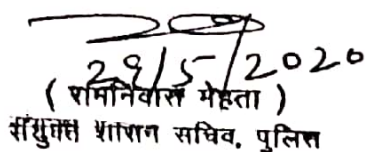 29/5/2020
( रामनिवास मेहता )
संयुक्त शासन सचिव, पुलिस